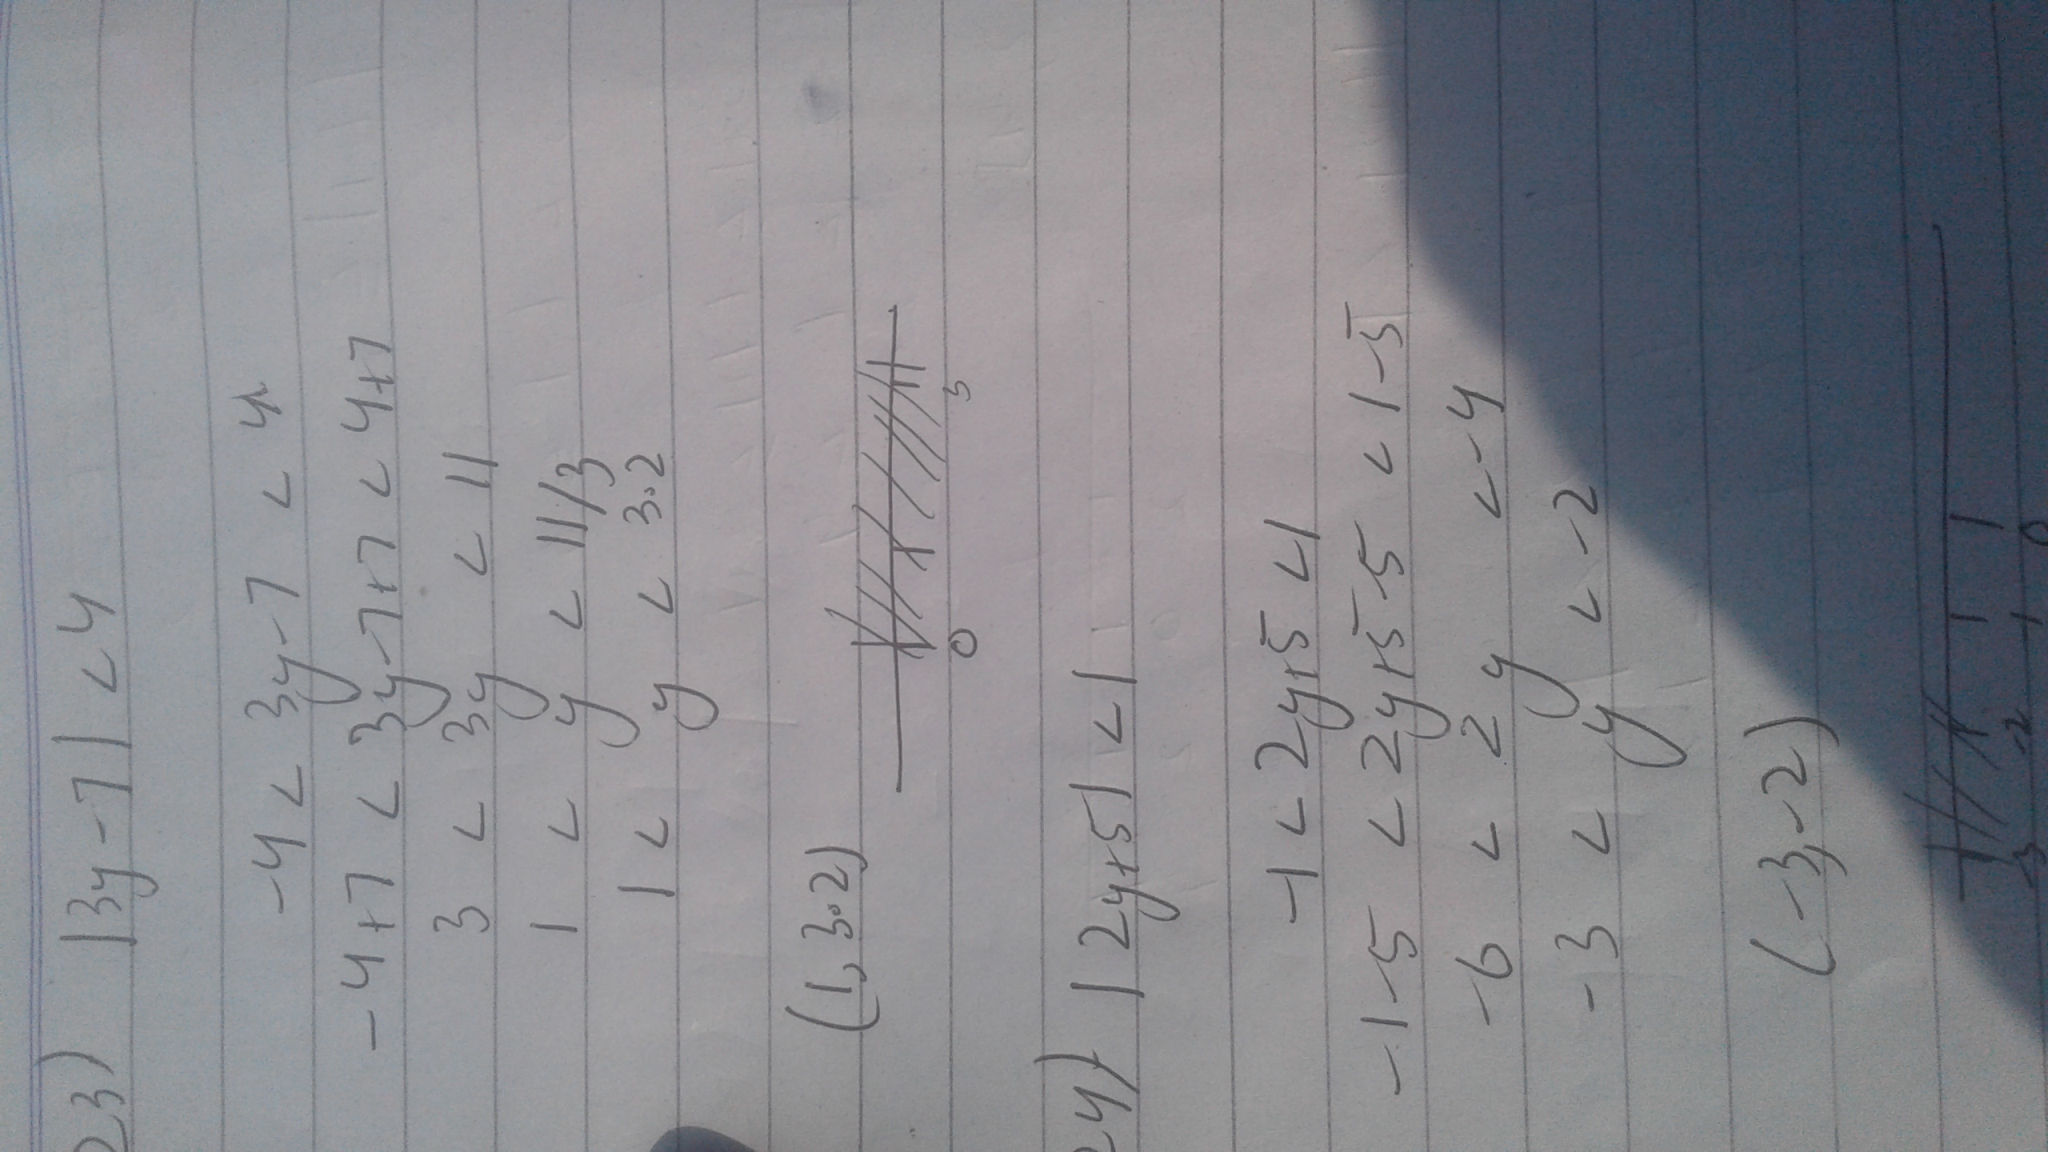 23) |3y-7| < 4
-4 < 3y-7 < 4
-4+7 < 3y-7+7 < 4+7
3 < 3y < 11
1 < y < 11/3
1 < y < 3.2
(1, 3.2)
0 3
24) |2y+5| < 1
-1 < 2y+5 < 1
-1-5 < 2y+5-5 < 1-5
-6 < 2y < -4
-3 < y < -2
(-3,-2)
-3 -2 -1 0